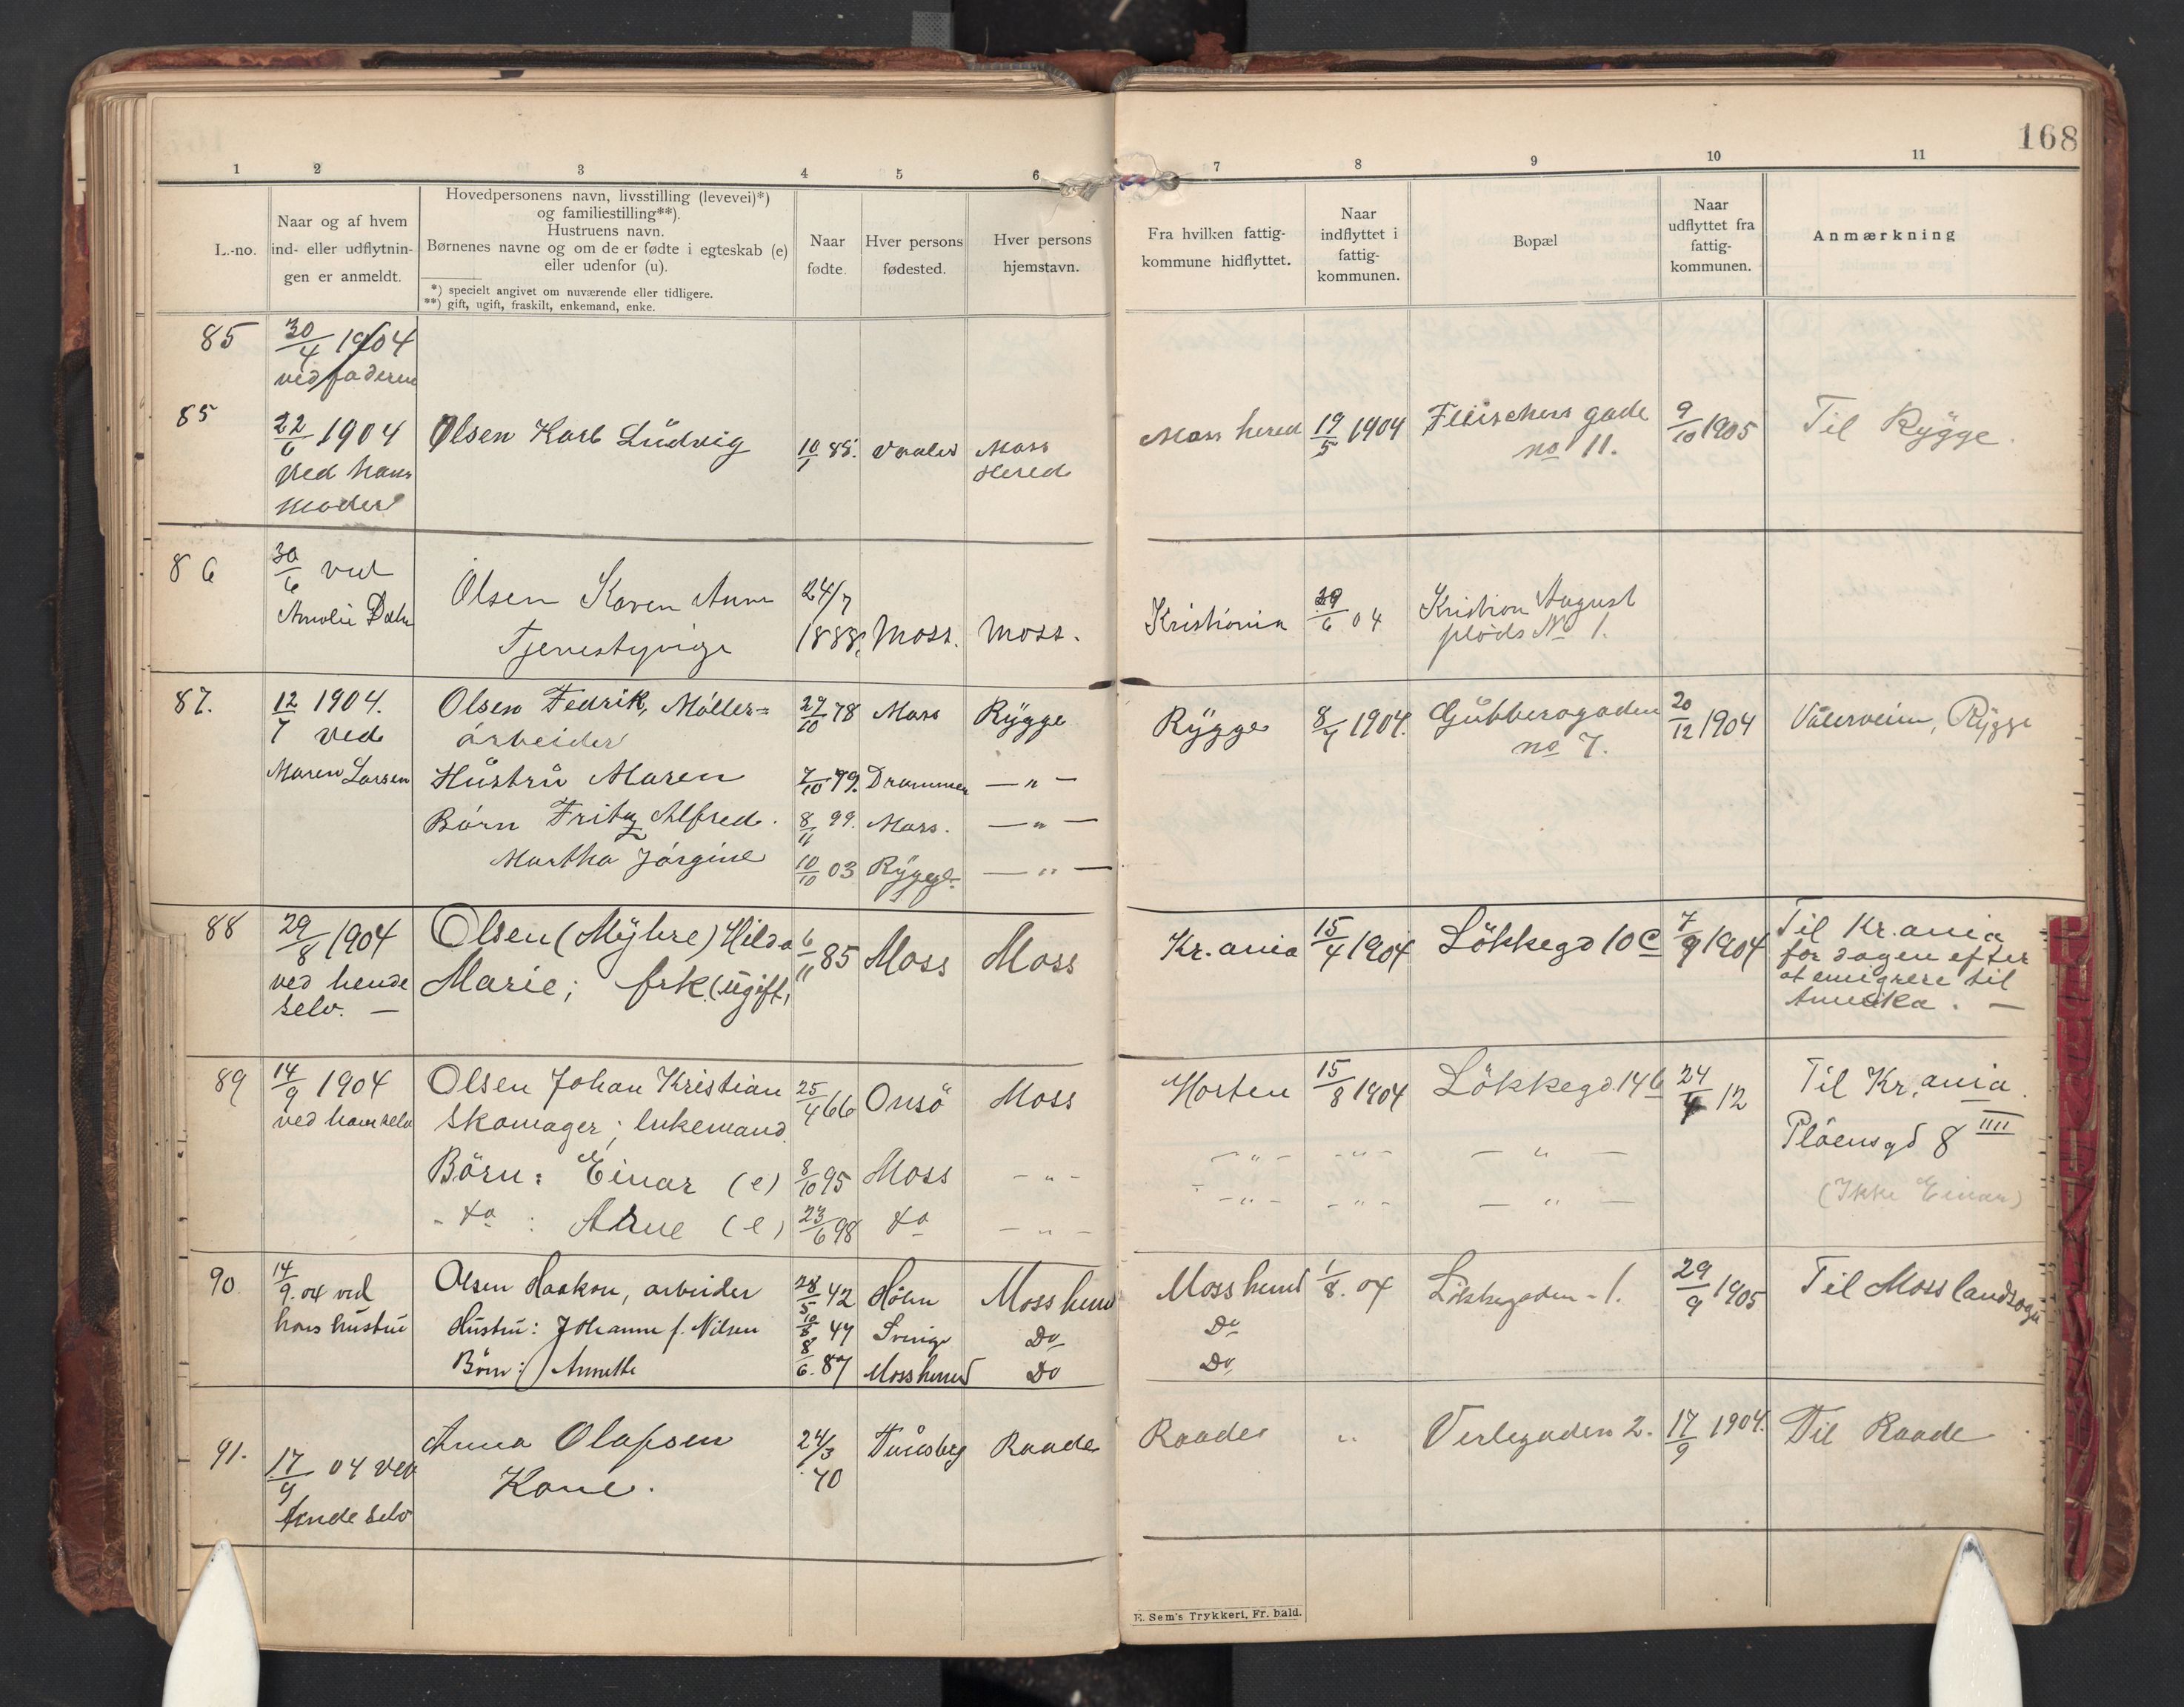 168
1 2 3 4 5 6 7 8 9 10 11
L.-no.
Naar og af hvem
ind- eller udflytnin-
gen er anmeldt.
Hovedpersonens navn, livsstilling (levevei)*)
og familiestilling**).
Hustruens navn.
Børnenes navne og om de er fødte i egteskab (e)
eller udenfor (u).
*) specielt angivet om nuværende eller tidligere.
**) gift, ugift, fraskilt, enkemand, enke.
Naar
fødte.
Hver persons
fødested.
Hver persons
hjemstavn.
Fra hvilken fattig-
kommune hidflyttet.
Naar
indflyttet i
fattig-
kommunen.
Bopæl
Naar
udflyttet fra
fattig-
kommunen.
Anmærkning
85 30/4 1904
ved faderen
85 22/6 1904 Olsen Karl Ludvig 10/1 85. Vaaler Moss Moss hered 19/5 1904 Fleischers gade 9/10 1905 Til Rygge.
ved hans Hered no 11.
moder
86 30/6 ved Olsen Karen Anna 24/7 Kristiania 29/6 04 Kristian August
Amalie Dahl Tjenestepige 1888. Moss. Moss. plads No 1.
87. 12/7 1904. Olsen Fedrik, Møller= 27/10 78 Moss Rygge Rygge 8/7 1904. Gubberogaden 20/12 1904 Vålerveien, Rygge
ved arbeider no 7.
Maren Larsen Hustru Maren 7/10 79. Drammen — " —
Børn Fritz Alfred. 8/11 99. Moss. — " —
Martha Jørgine 10/10 03 Rygge. — " —
88 29/8 1904 Olsen (Myhre) Hilda 6/11 85 Moss Moss Kr.ania 15/4 1904 Løkkegd 10 c 7/9 1904 Til Kr.ania
ved hende Marie; frk. (ugift) for dagen efter
selv. — at emigrere til
Amerika. —
89 14/9 1904 Olsen Johan Kristian 25/4 66 Onsø Moss Horten 15/8 1904 Løkkegd. 14 b 24/4 12 Til Kr.ania.
ved ham selv Skomager; enkemand. Pløensgd 8 IIII
Børn: Einar (e) 8/10 95 Moss - " - - " - - " - — " —
- do : Arne (e) 23/6 98 do - " - - " - - " - — " — (Ikke Einar)
90 14/9. 04 ved Olsen Haakon, arbeider 28/5 42 Høln Moss hered Moss hered 1/8. 04 Løkkegaden - 1. 29/9 1905 Til Moss landsogn
hans hustru Hustru: Johanne f. Nilsen 10/8 47 Sverige Do Do
Børn: Annette 8/6. 87 Moss hered Do Do
91. 17/9 04 ved Anna Olafsen 24/3 Tunsberg Raade Raade " Verlegaden 2. 17/9 1904. Til Raade
hende selv Kone. 70
E. Sem's Trykkeri, Fr.hald.